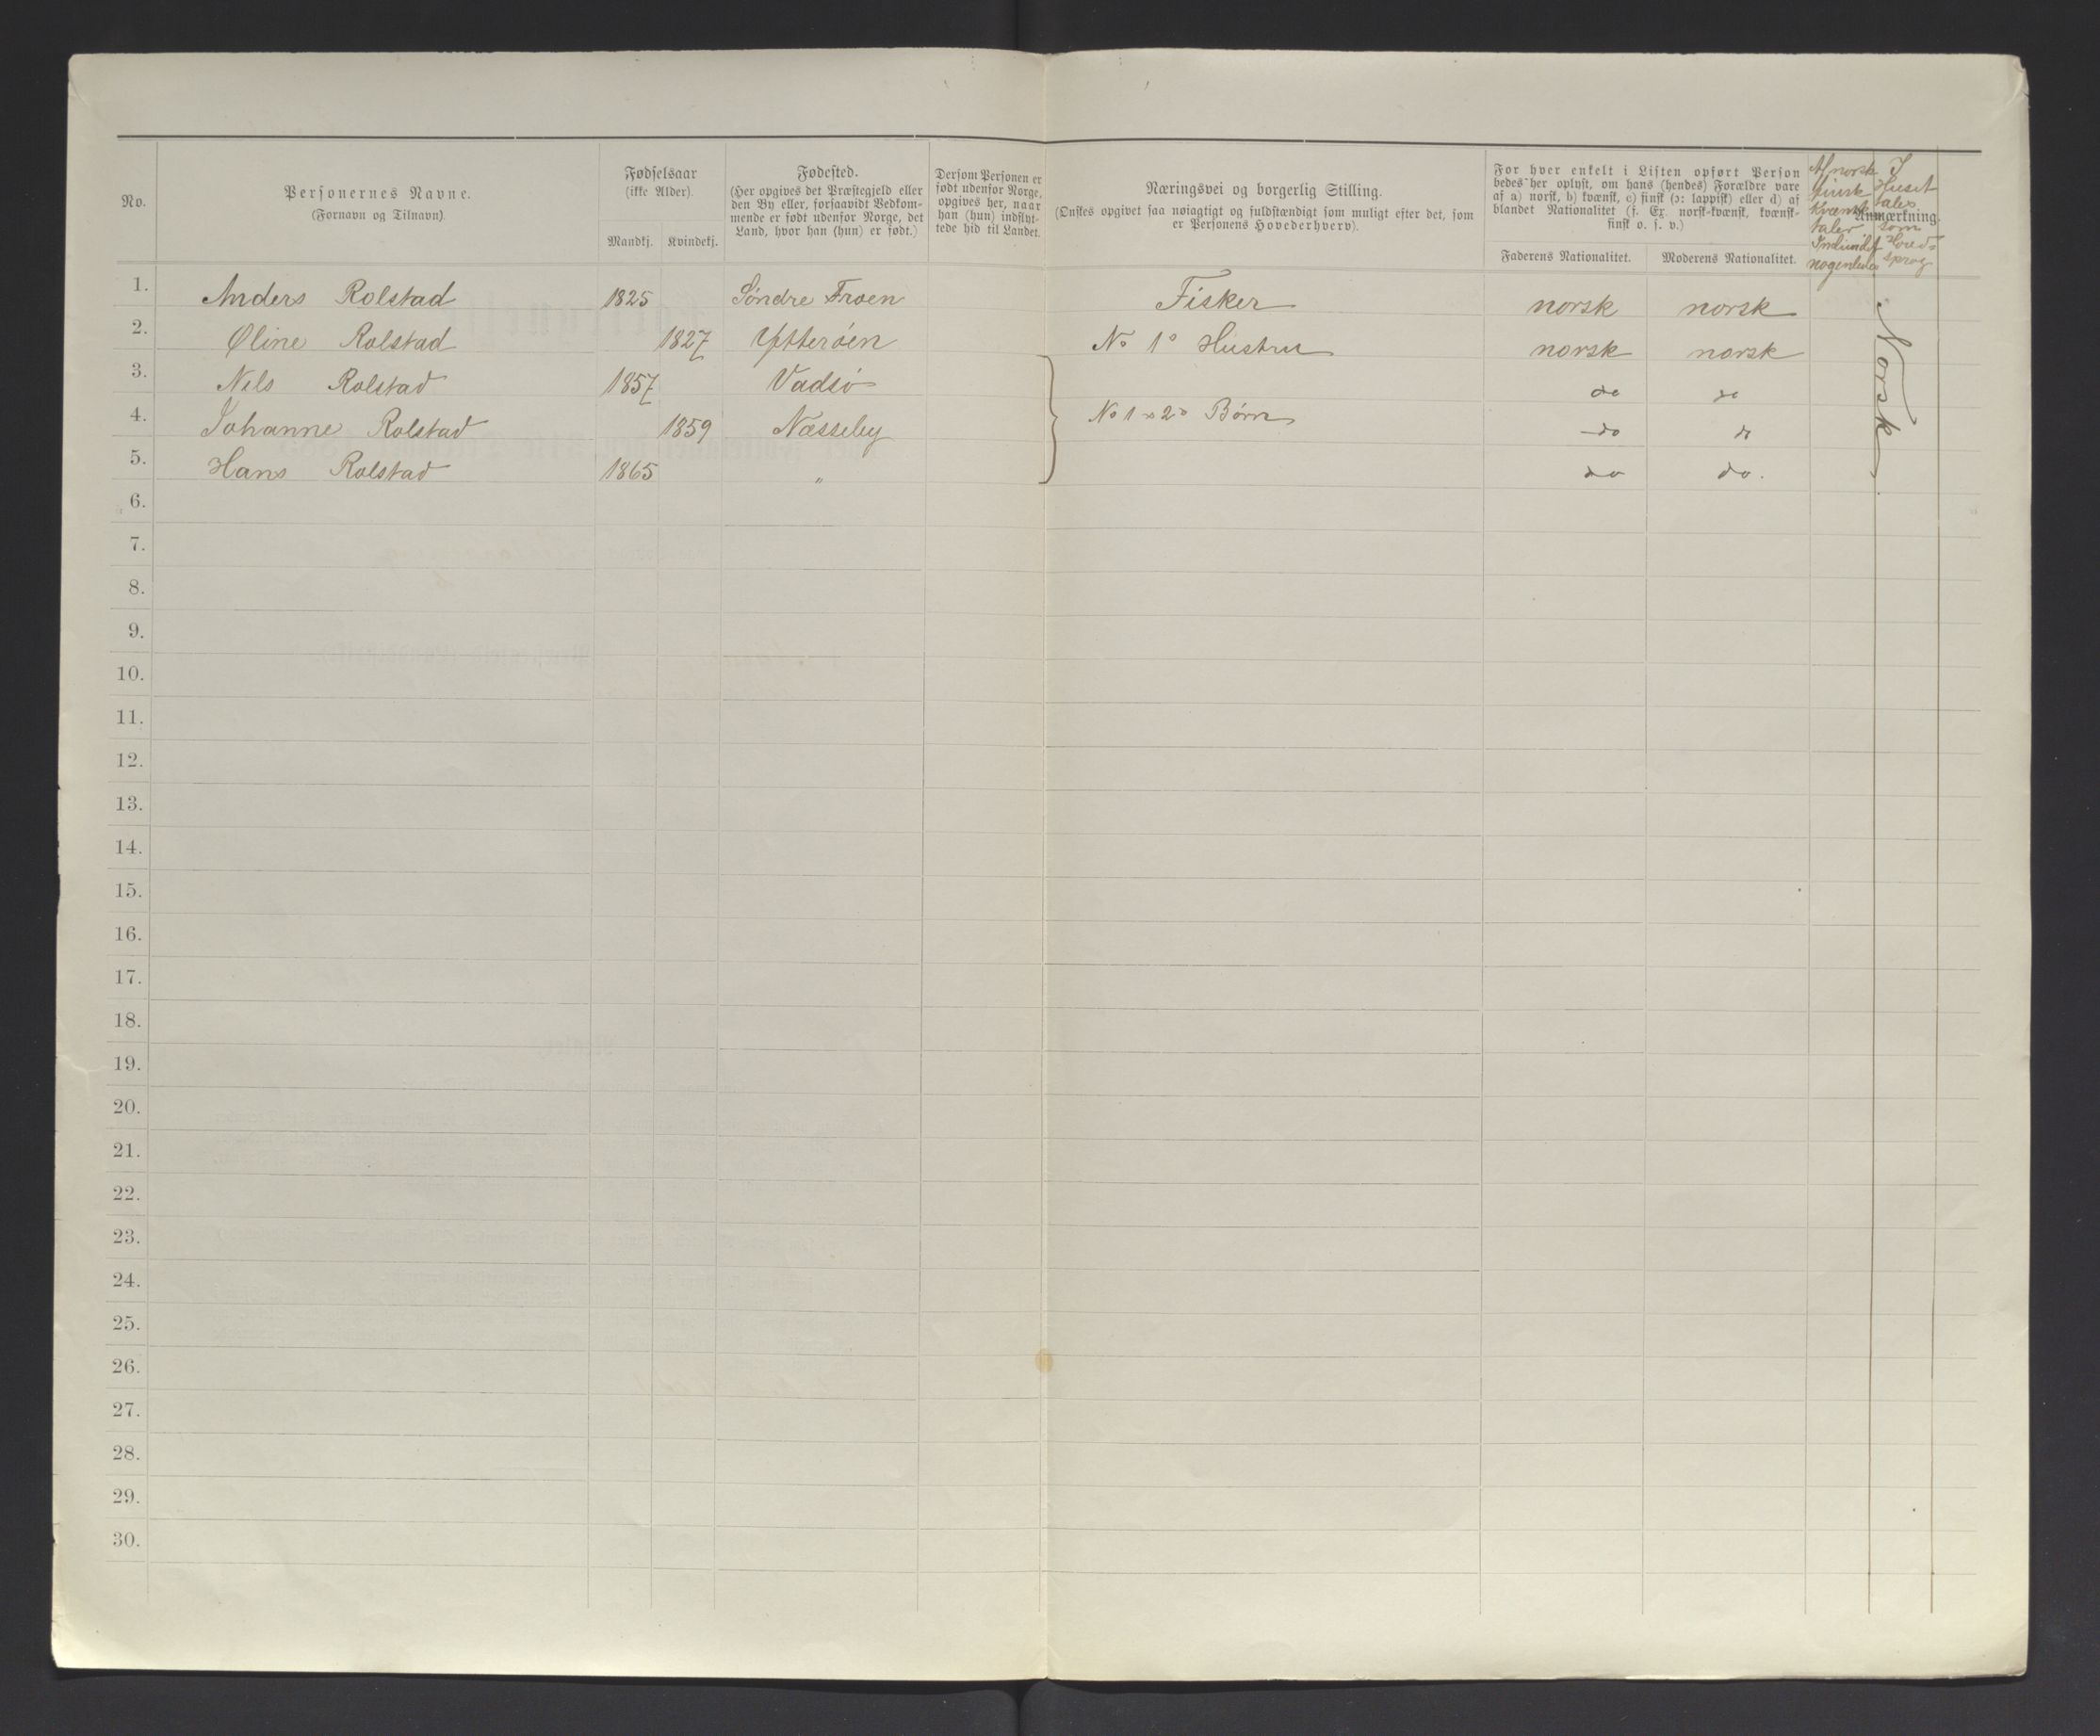 No.
Personernes Navne.
(Fornavn og Tilnavn).
Fødselsaar
(ikke Alder).
Mandkj. Kvindekj.
Fødested.
(Her opgives det Præstegjeld eller
den By eller, forsaavidt Vedkom-
mende er født udenfor Norge, det
Land, hvor han (hun) er født.)
Dersom Personen er
født udenfor Norge,
opgives her, naar
han (hun) indflyt-
tede hid til Landet.
Næringsvei og borgerlig Stilling.
(Ønskes opgivet saa nøiagtigt og fuldstændigt som muligt efter det, som
er Personens Hovederhverv).
For hver enkelt i Listen opført Person
bedes her oplyst, om hans (hendes) Forældre vare
af a) norsk, b) kvænsk, c) finsk (ɔ: lappisk) eller d) af
blandet Nationalitet (f. Ex. norsk-kvænsk, kvænsk-
finsk o. s. v.)
Faderens Nationalitet. Moderens Nationalitet.
Anmærkning.
Af norsk
finsk
Kvænsk
taler
Individet
nogenlunde
I
Huset
tales
som
Hoved-
sprog
1. Anders Rolstad 1825 Søndre Froen Fisker norsk norsk
2. Øline Rolstad 1827 Ytterøen No 1s Hustru norsk norsk
3. Nils Rolstad 1857 Vadsø do do
4. Johanne Rolstad 1859 Næsseby No 1 s 2s Børn do do
5. Hans Rolstad 1865 " do do.
Norsk
6.
7.
8.
9.
10.
11.
12.
13.
14.
15.
16.
17.
18.
19.
20.
21.
22.
23.
24.
25.
26.
27.
28.
29.
30.